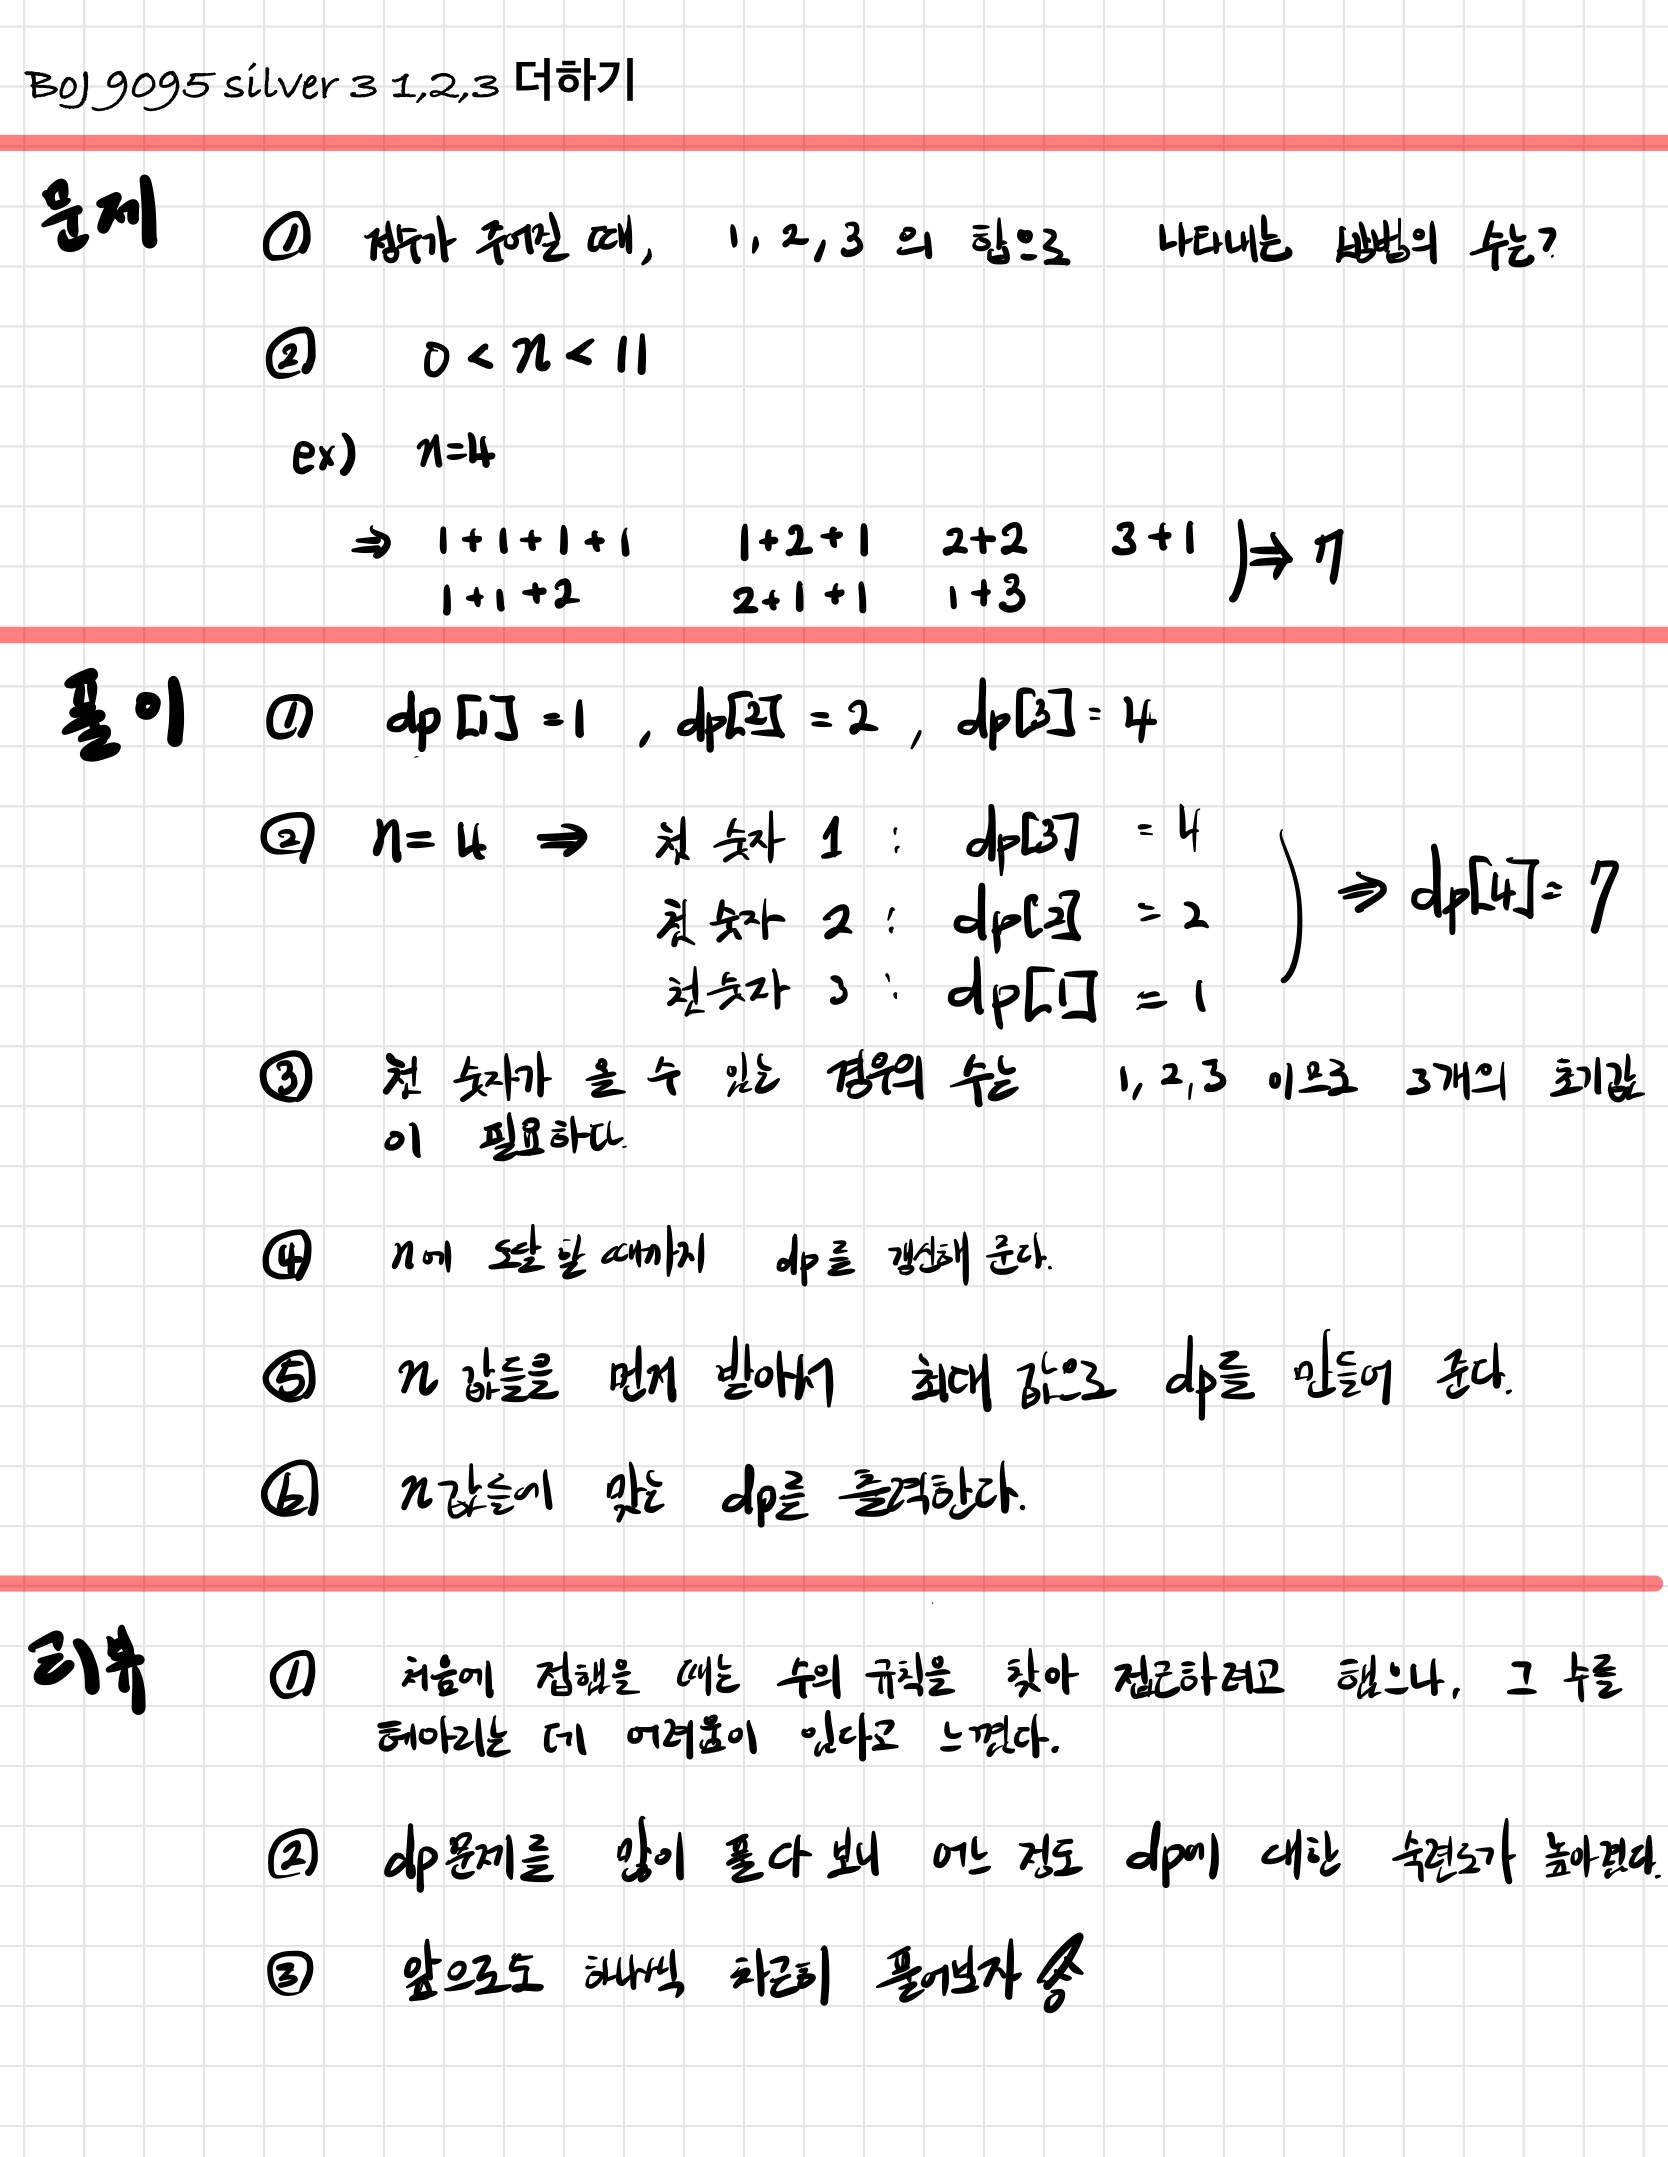 BOJ 9095 silver 3 1,2,3 더하기
문제
① 정수가 주어질 때, 1, 2, 3 의 합으로 나타내는 방법의 수는?
② 0 < n < 11
ex) n=4
⇒ 1+1+1+1 1+2+1 2+2 3+1 ) ⇒ 7
1+1+2 2+1+1 1+3
풀이
① dp[1] = 1 , dp[2] = 2 , dp[3] = 4
② n= 4 ⇒ 첫 숫자 1 : dp[3] = 4
첫 숫자 2 : dp[2] = 2 ) ⇒ dp[4]= 7
첫숫자 3 : dp[1] = 1
③ 첫 숫자가 올 수 있는 경우의 수는 1, 2, 3 이므로 3개의 초기값
이 필요하다.
④ n에 도달 할 때까지 dp를 갱신해 준다.
⑤ n 값들을 먼저 받아서 최대 값으로 dp를 만들어 준다.
⑥ n값들에 맞는 dp를 출력한다.
리뷰
① 처음에 접했을 때는 수의 규칙을 찾아 접근하려고 했으나, 그 수를
헤아리는 데 어려움이 있다고 느꼈다.
② dp문제를 많이 풀다 보니 어느 정도 dp에 대한 숙련도가 높아졌다.
③ 앞으로도 하나씩 차근히 풀어보자